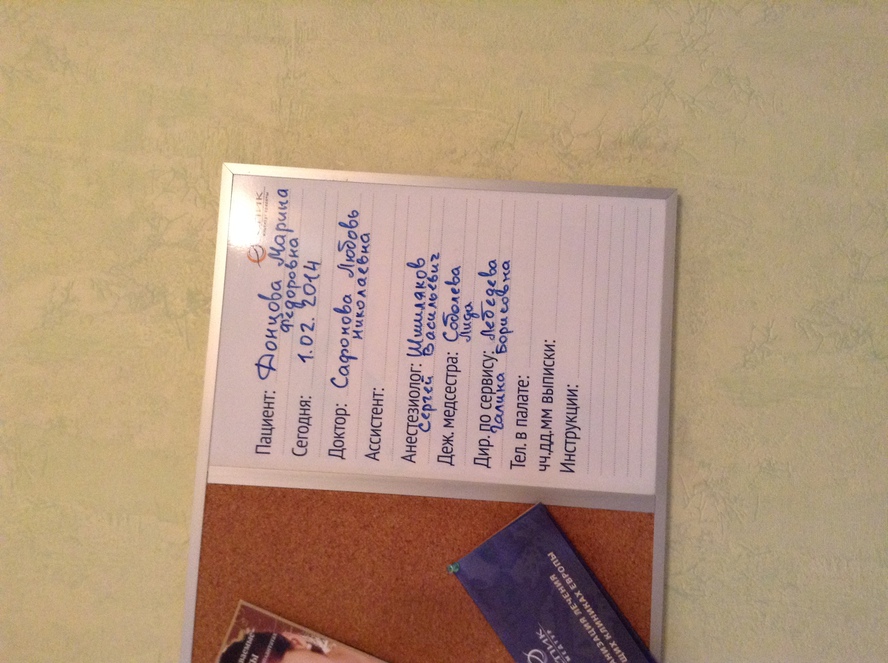 Пациент: Донцова Марина
Федоровна
Сегодня: 1.02. 2014
Доктор: Сафонова Любовь
Николаевна
Ассистент:
Анестезиолог: Шишляков
Сергей Васильевич
Деж. медсестра: Соболева
Лида
Дир. по сервису: Лебедева
Галина Борисовна
Тел. в палате:
чч.дд.мм выписки:
Инструкции:
ЛЕЧЕНИЯ
КЛИНИКАХ ЕВРОПЫ